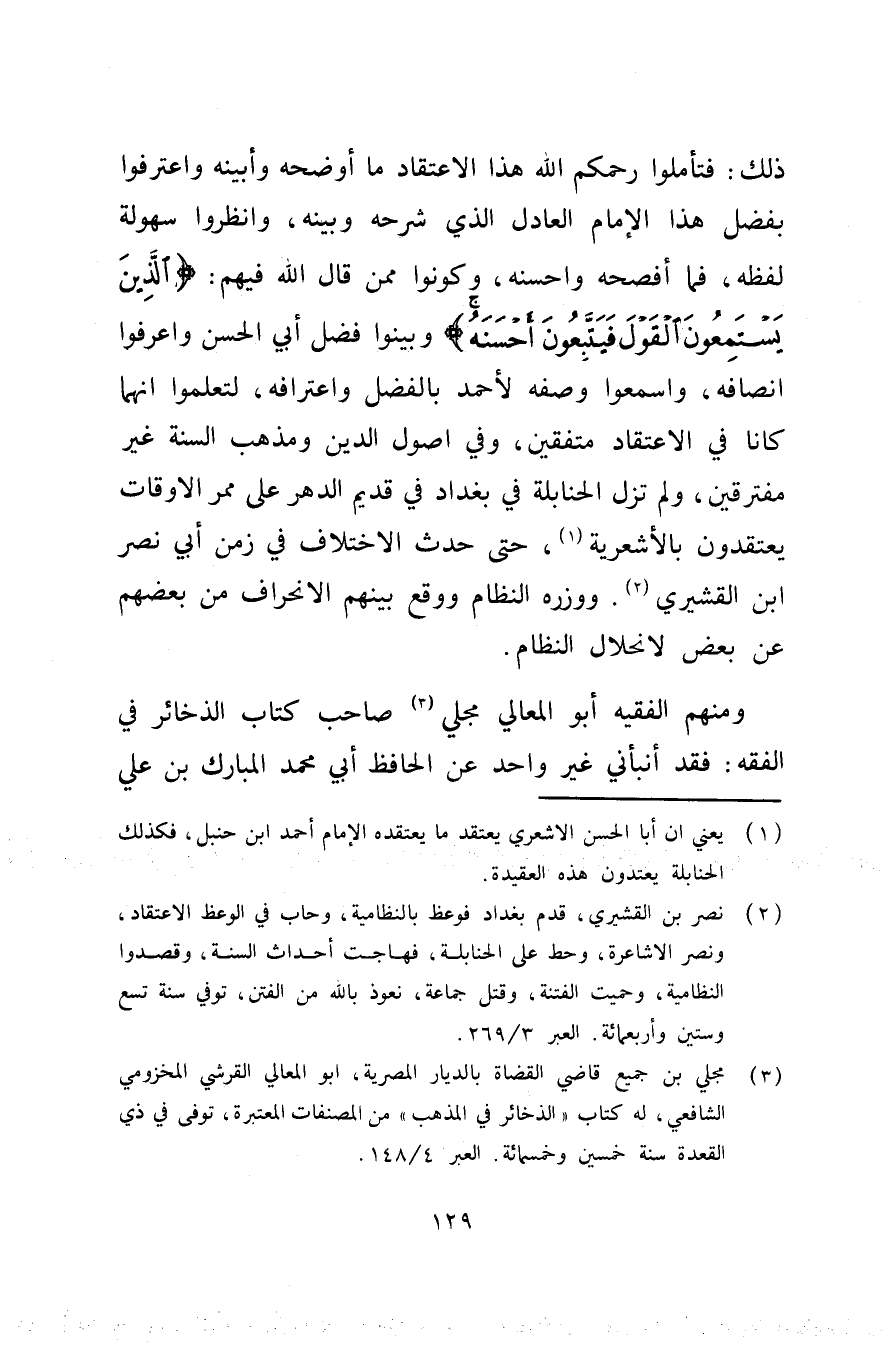 ذلك : فتأملوا رحمكم الله هذا الاعتقاد ما أوضحه وأبينه واعترفوا
بفضل هذا الإمام العادل الذي شرحه وبينه ، وانظروا سهولة
لفظه ، فما أفصحه واحسنه ، وكونوا ممن قال الله فيهم : ﴿ ٱلَّذِينَ
يَسْتَمِعُونَ ٱلْقَوْلَ فَيَتَّبِعُونَ أَحْسَنَهُۥٓ ۚ ﴾ وبينوا فضل أبي الحسن واعرفوا
انصافه ، واسمعوا وصفه لأحمد بالفضل واعترافه ، لتعلموا انهما
كانا في الاعتقاد متفقين ، وفي اصول الدين ومذهب السنة غير
مفترقين ، ولم تزل الحنابلة في بغداد في قديم الدهر على ممر الاوقات
يعتقدون بالأشعرية (١) ، حتى حدث الاختلاف في زمن أبي نصر
ابن القشيري (٢) . ووزره النظام ووقع بينهم الانحراف من بعضهم
عن بعض لانحلال النظام .
ومنهم الفقيه أبو المعالي مجلي (٣) صاحب كتاب الذخائر في
الفقه : فقد أنبأني غير واحد عن الحافظ أبي محمد المبارك بن علي
(١) يعني ان أبا الحسن الاشعري يعتقد ما يعتقده الإمام أحمد ابن حنبل ، فكذلك
الحنابلة يعتدون هذه العقيدة .
(٢) نصر بن القشيري ، قدم بغداد فوعظ بالنظامية ، وحاب في الوعظ الاعتقاد ،
ونصر الاشاعرة ، وحط على الحنابلة ، فهاجت أحداث السنة ، وقصدوا
النظامية ، وحميت الفتنة ، وقتل جماعة ، نعوذ بالله من الفتن ، توفي سنة تسع
وستين وأربعمائة . العبر ٢٦٩/٣ .
(٣) مجلي بن جميع قاضي القضاة بالديار المصرية ، ابو المعالي القرشي المخزومي
الشافعي ، له كتاب « الذخائر في المذهب » من المصنفات المعتبرة ، توفى في ذي
القعدة سنة خمسين وخمسمائة . العبر ١٤٨/٤ .
١٢٩